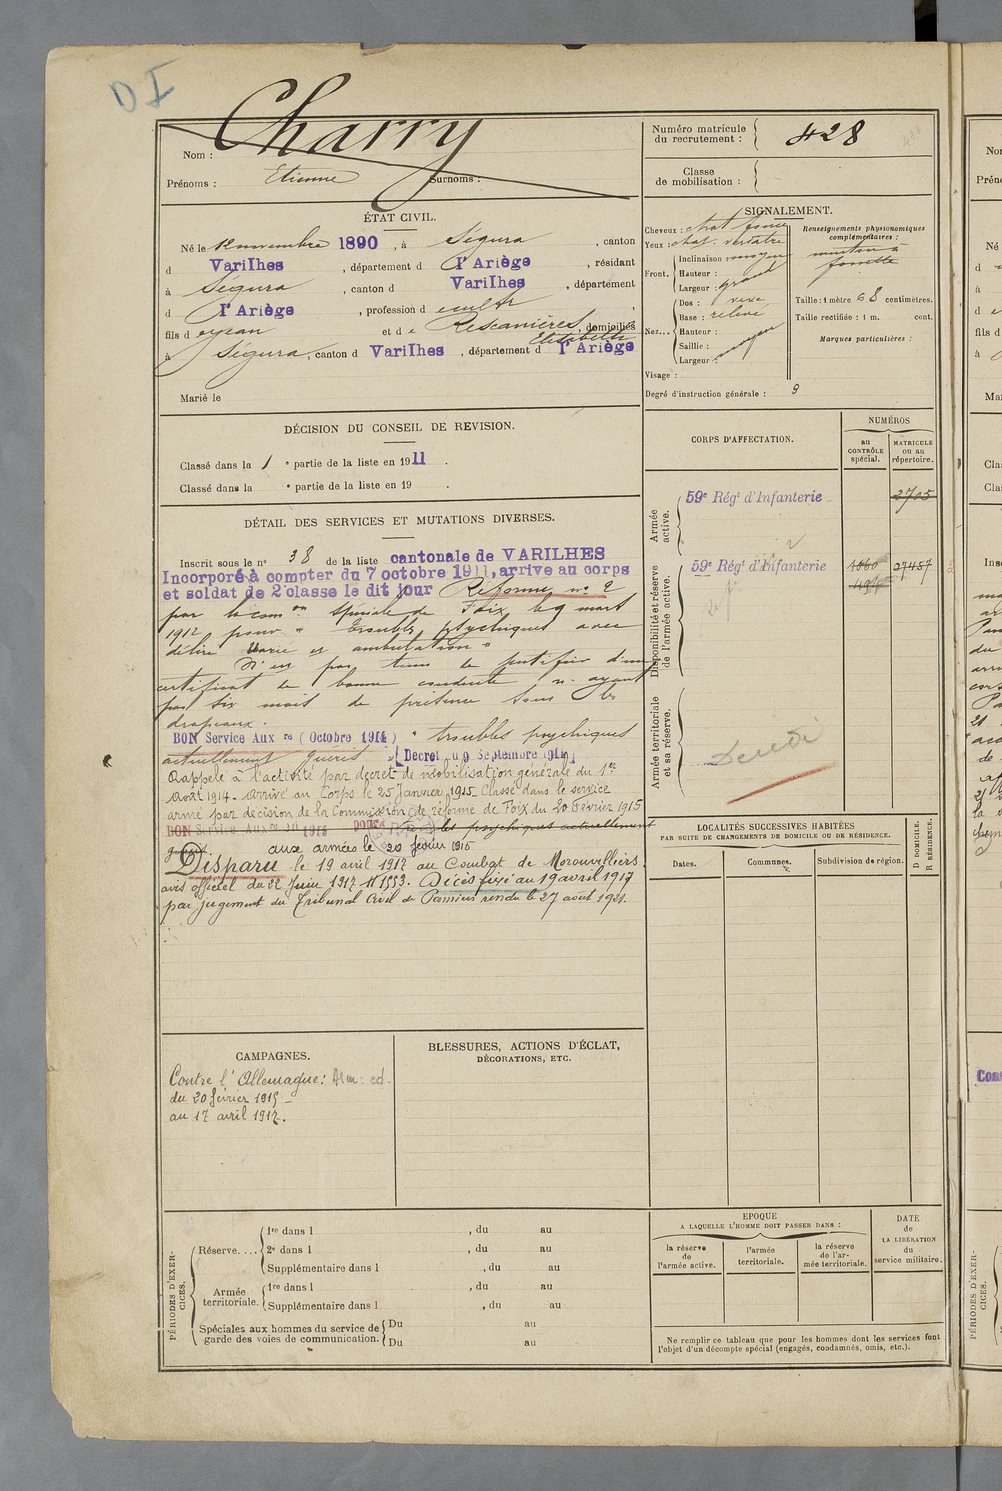 DI
Charry
Nom :
Prénoms : Etienne Surnoms :
Numéro matricule du recrutement : 428
Classe de mobilisation :
ÉTAT CIVIL.
Né le 12 novembre 1890, à Ségura, canton
d Varilhes, département d l'Ariège, résidant
à Ségura, canton d Varilhes, département
d l'Ariège, profession d cultr
fils d et d e Rescanières, domiciliés
Elisabeth
à Ségura, canton d Varilhes, département d l'Ariège
Marié le
SIGNALEMENT.
Cheveux : chat. foncé
Yeux : chat. verdâtre
Front. Inclinaison : moyen
Hauteur :
Largeur : grand
Nez... Dos : vexe
Base : relevé
Hauteur :
Saillie : moyen
Largeur :
Visage :
Degré d'instruction générale : 3
Renseignements physionomiques complémentaires :
menton à
fossette
Taille : 1 mètre 68 centimètres.
Taille rectifiée : 1 m. cent.
Marques particulières :
DÉCISION DU CONSEIL DE REVISION.
Classé dans la 1 e partie de la liste en 1911.
Classé dans la e partie de la liste en 19 .
DÉTAIL DES SERVICES ET MUTATIONS DIVERSES.
Inscrit sous le n° 38 de la liste cantonale de VARILHES
Incorporé à compter du 7 octobre 1911, arrive au corps
et soldat de 2e classe le dit jour Réformé n° 2
par la comon spéciale de Foix, le 9 mars
1912 pour " Troubles psychiques avec
délire et ambulation "
N'est pas tenu de justifier d'un
certificat de bonne conduite n' ayant
pas six mois de présence sous les
drapeaux.
BON Service Auxre (Octobre 1914) " troubles psychiques
actuellement guéris " [Decret du 9 Septembre 1914]
Rappelé à l'activité par decret de mobilisation générale du 1er
Août 1914 - Arrivé au Corps le 25 Janvier 1915 - Classé dans le service
armé par décision de la Commission de réforme de Foix du 20 Février 1915
BON Service Auxre 1915 pour troubles psychiques actuellement
guéris aux armées le 20 février 1915
Disparu le 19 avril 1917 au Combat de Moronvilliers.
avis officiel du 22 Juin 1917 N 1553. Décès fixé au 19 avril 1917
par jugement du Tribunal Civil de Pamiers rendu le 27 août 1921.
CORPS D'AFFECTATION.
NUMÉROS
au CONTRÔLE spécial.
MATRICULE ou au répertoire.
Armée active.
59e Régt d'Infanterie 2705
Disponibilité et réserve de l'armée active.
59e Régt d'Infanterie 1060 07457
Armée territoriale et sa réserve.
Décédé
LOCALITÉS SUCCESSIVES HABITÉES
PAR SUITE DE CHANGEMENTS DE DOMICILE OU DE RÉSIDENCE.
Dates.
Communes.
Subdivision de région.
D DOMICILE.
R RÉSIDENCE.
CAMPAGNES.
Contre l'Allemagne :
du 20 février 1915 -
au 17 avril 1917.
BLESSURES, ACTIONS D'ÉCLAT,
DÉCORATIONS, ETC.
PÉRIODES D'EXERCICES.
Réserve.... 1re dans l , du au
2e dans l , du au
Supplémentaire dans l , du au
Armée territoriale. 1re dans l , du au
Supplémentaire dans l , du au
Spéciales aux hommes du service de garde des voies de communication. Du au
Du au
EPOQUE
A LAQUELLE L'HOMME DOIT PASSER DANS :
la réserve de l'armée active.
l'armée territoriale.
la réserve de l'armée territoriale.
DATE de LA LIBÉRATION du service militaire.
Ne remplir ce tableau que pour les hommes dont les services font
l'objet d'un décompte spécial (engagés, condamnés, omis, etc.).